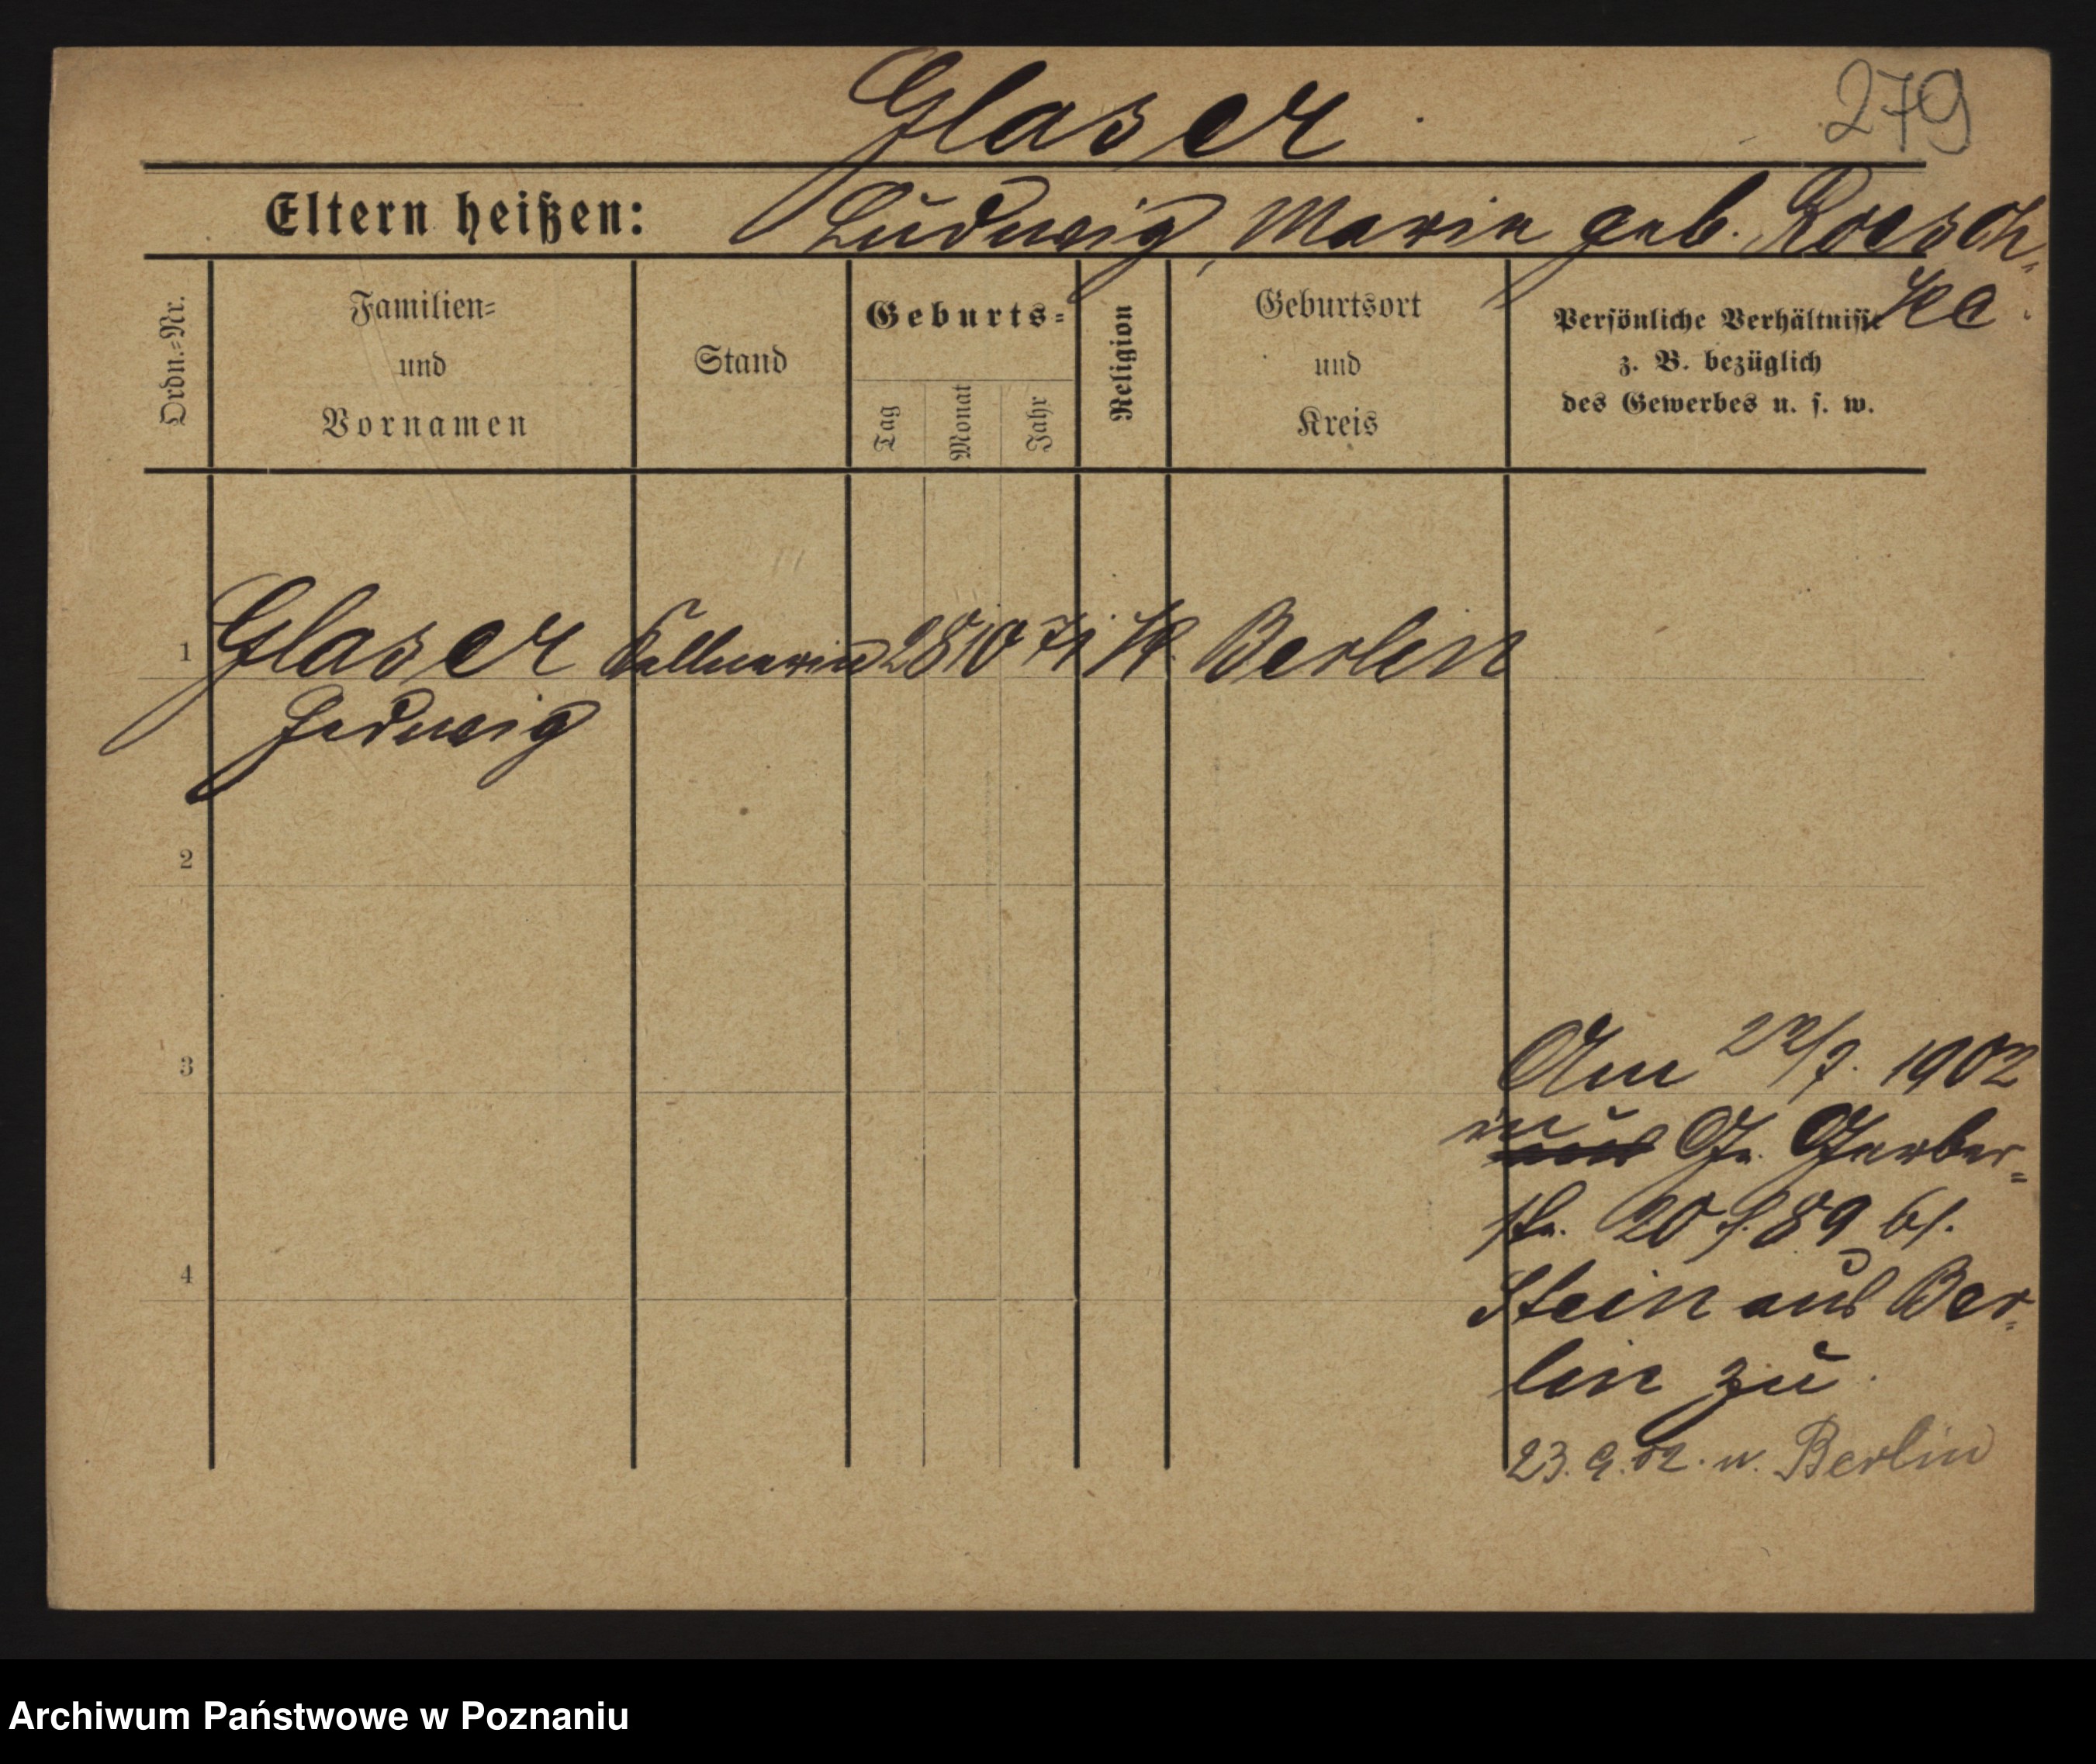 279
Glaser
Eltern heißen: Ludwig, Marie geb. Roesch-
ke
Ordn.-Nr.
Familien-
und
Vornamen
Stand
Geburts-
Tag
Monat
Jahr
Religion
Geburtsort
und
Kreis
Persönliche Verhältnisse
z. B. bezüglich
des Gewerbes u. s. w.
1 Glaser Kellnerin 28 10 71 K. Berlin
Hedwig
2
3
4
Am 22/7. 1902
in
Gr. Gerber-
str. 20 b/
Stein aus Ber-
lin zu
23.9.02. n. Berlin
Archiwum Państwowe w Poznaniu